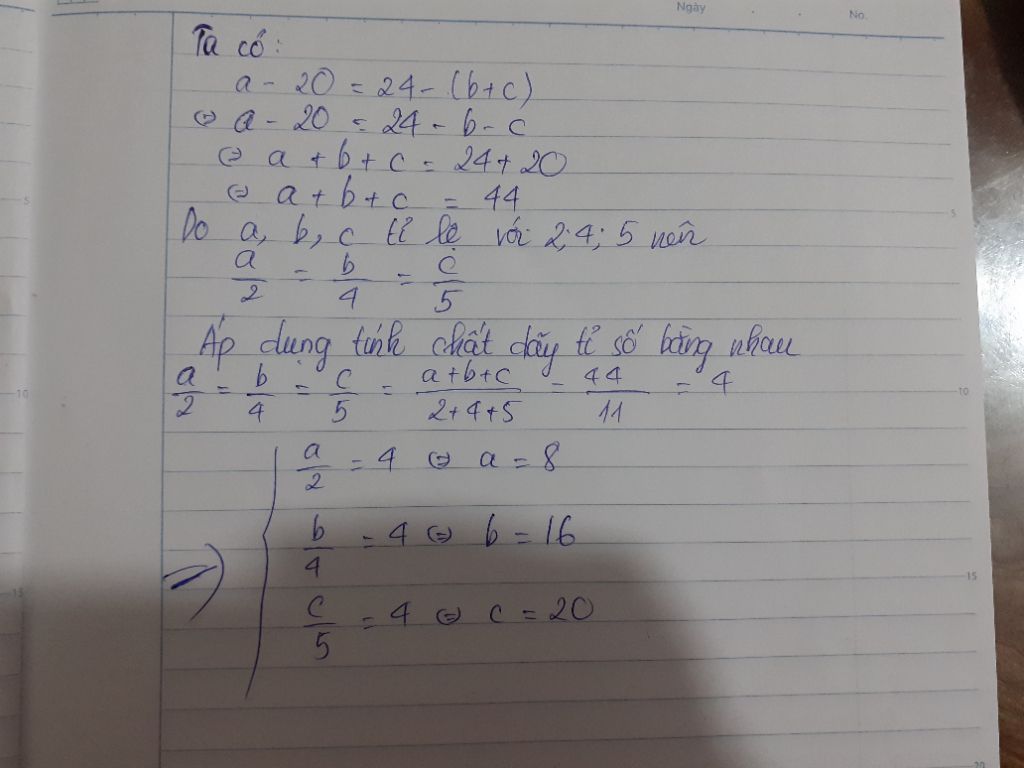 Ngày . . No.
Ta có:
a - 20 = 24 - (b+c)
⇔ a - 20 = 24 - b - c
⇔ a + b + c = 24 + 20
⇔ a + b + c = 44
Do a, b, c tỉ lệ với 2; 4; 5 nên
a/2 = b/4 = c/5
Áp dụng tính chất dãy tỉ số bằng nhau
a/2 = b/4 = c/5 = (a+b+c)/(2+4+5) = 44/11 = 4
a/2 = 4 ⇔ a = 8
⇒ b/4 = 4 ⇔ b = 16
c/5 = 4 ⇔ c = 20
5
10
15
20
5
10
15